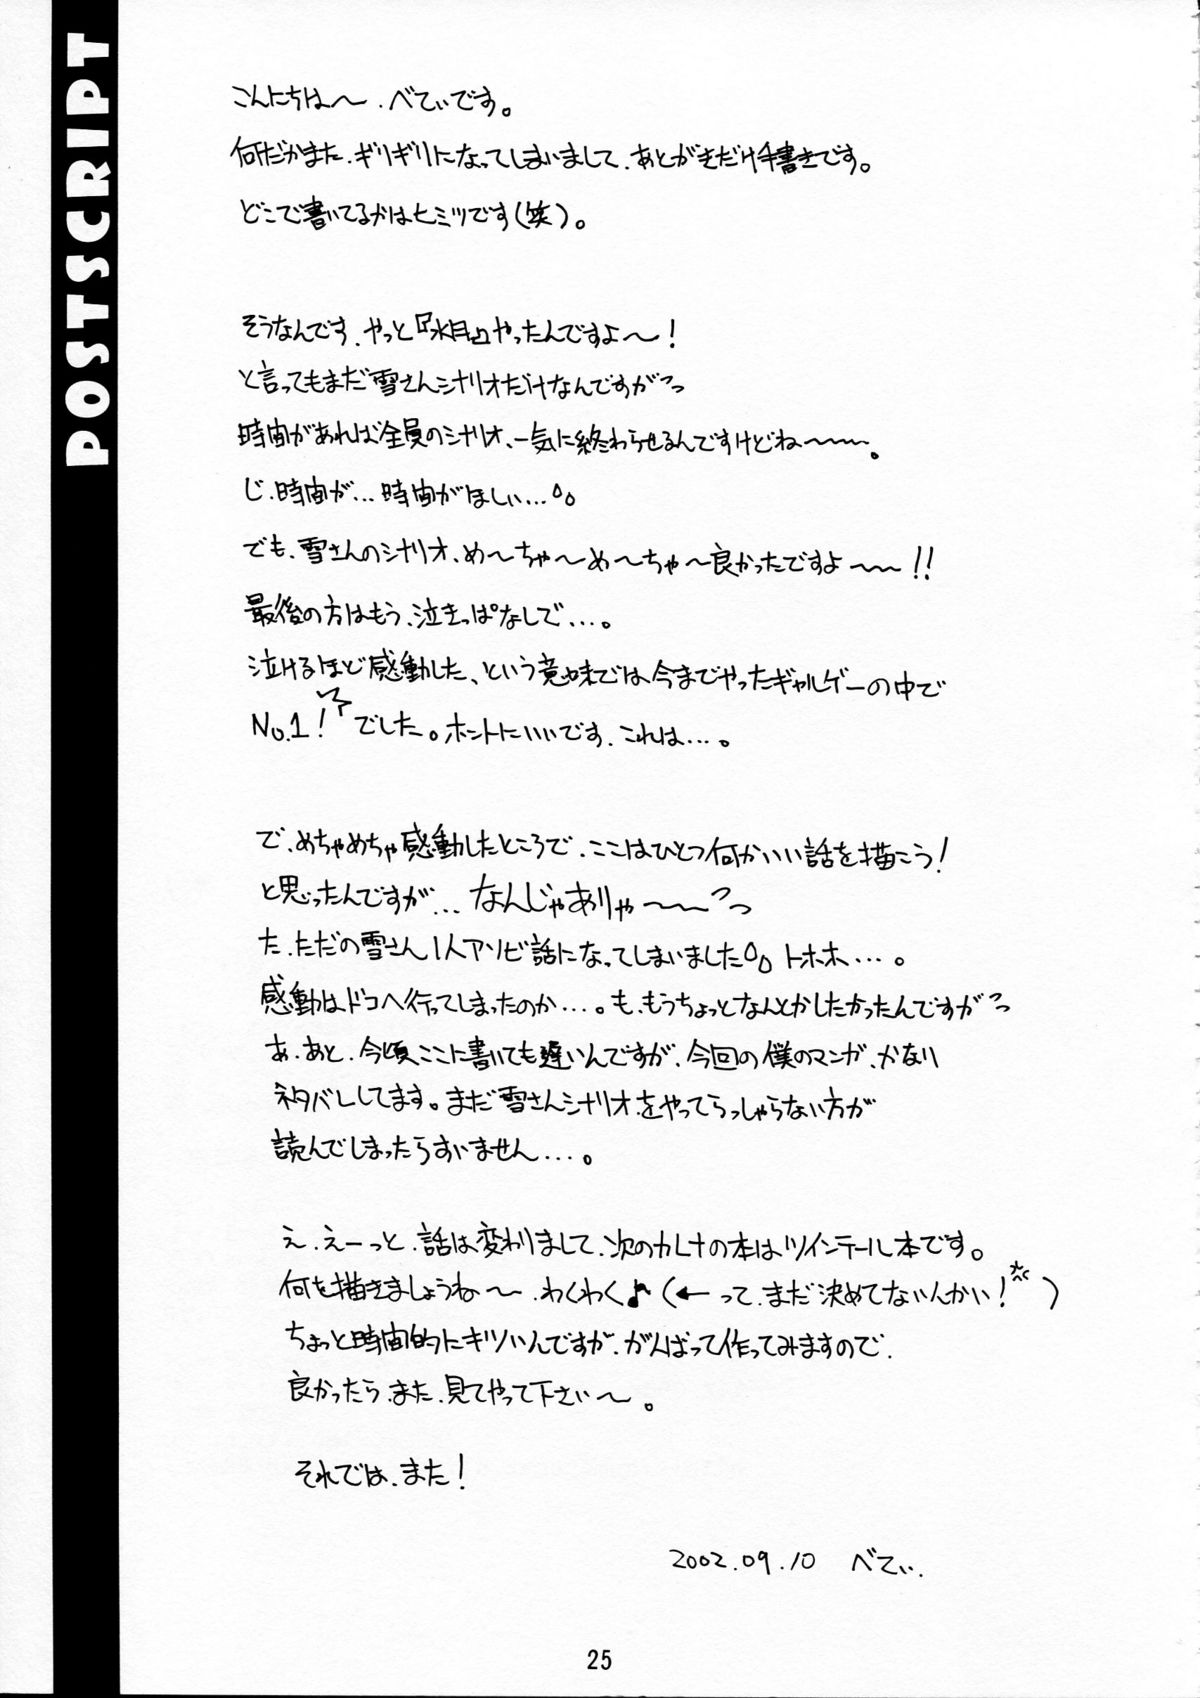 POSTSCRIPT
こんにちは～、べてぃです。
何だかまた、ギリギリになってしまいまして、あとがきだけ手書きです。
どこで書いてるかはヒミツです(笑)。
そうなんです、やっと『水月』やったんですよ～！
と言ってもまだ雪さんシナリオだけなんですがっっ
時間があれば全員のシナリオ、一気に終わらせるんですけどね～～。
じ、時間が…時間がほしい…。。
でも、雪さんのシナリオ、め～ちゃ～め～ちゃ～良かったですよ～～!!
最後の方はもう、泣きっぱなしで…。
泣けるほど感動した、という意味では今までやったギャルゲーの中で
No.1！でした。ホントにいいです、これは…。
で、めちゃめちゃ感動したところで、ここはひとつ何かいい話を描こう！
と思ったんですが…なんじゃありゃ～～っっ
た、ただの雪さん1人アソビ話になってしまいました。。トホホ…。
感動はドコへ行ってしまったのか…。も、もうちょっとなんとかしたかったんですがっっ
あ、あと、今頃ここに書いても遅いんですが、今回の僕のマンガ、かなり
ネタバレしてます。まだ雪さんシナリオをやってらっしゃらない方が
読んでしまったらすいません…。
え、えーっと、話は変わりまして、次のカレナの本はツインテール本です。
何を描きましょうね～、わくわく♪(←って、まだ決めてないんかい！)
ちょっと時間的にキツいんですが、がんばって作ってみますので、
良かったら、また、見てやって下さい～。
それでは、また！
2002.09.10 べてぃ.
25